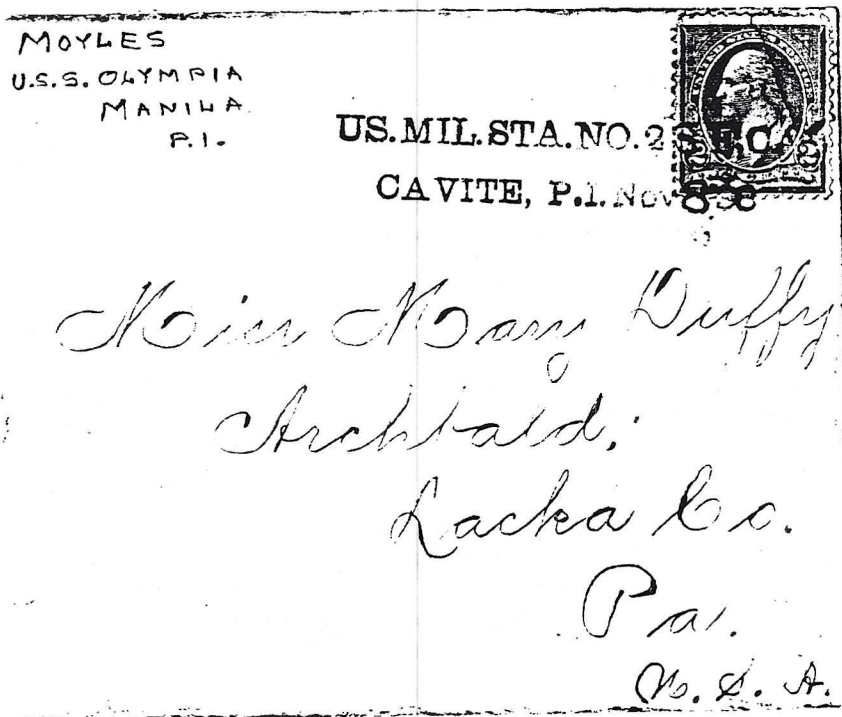 MOYLES
U.S.S. OLYMPIA
MANILA
P.I.
US. MIL. STA. NO. 2
CAVITE, P.I. Nov 8
Miss Mary Duffy
Archbald,
Lacka Co.
Pa.
U. S. A.